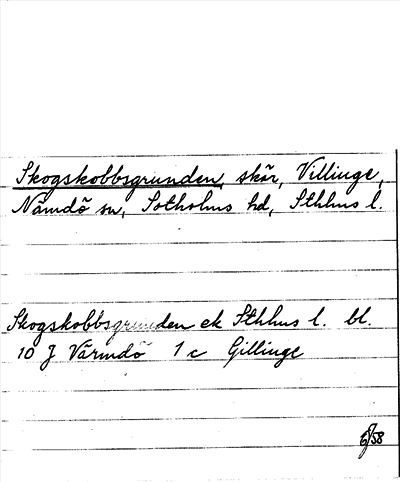 Skogskobbsgrunden, skär, Villinge,
Nämdö sn, Sotholms hd, Sthlms l.
Skogskobbsgrunden ek Sthlms l. bl.
10 J Värmdö 1 c Gillinge
58